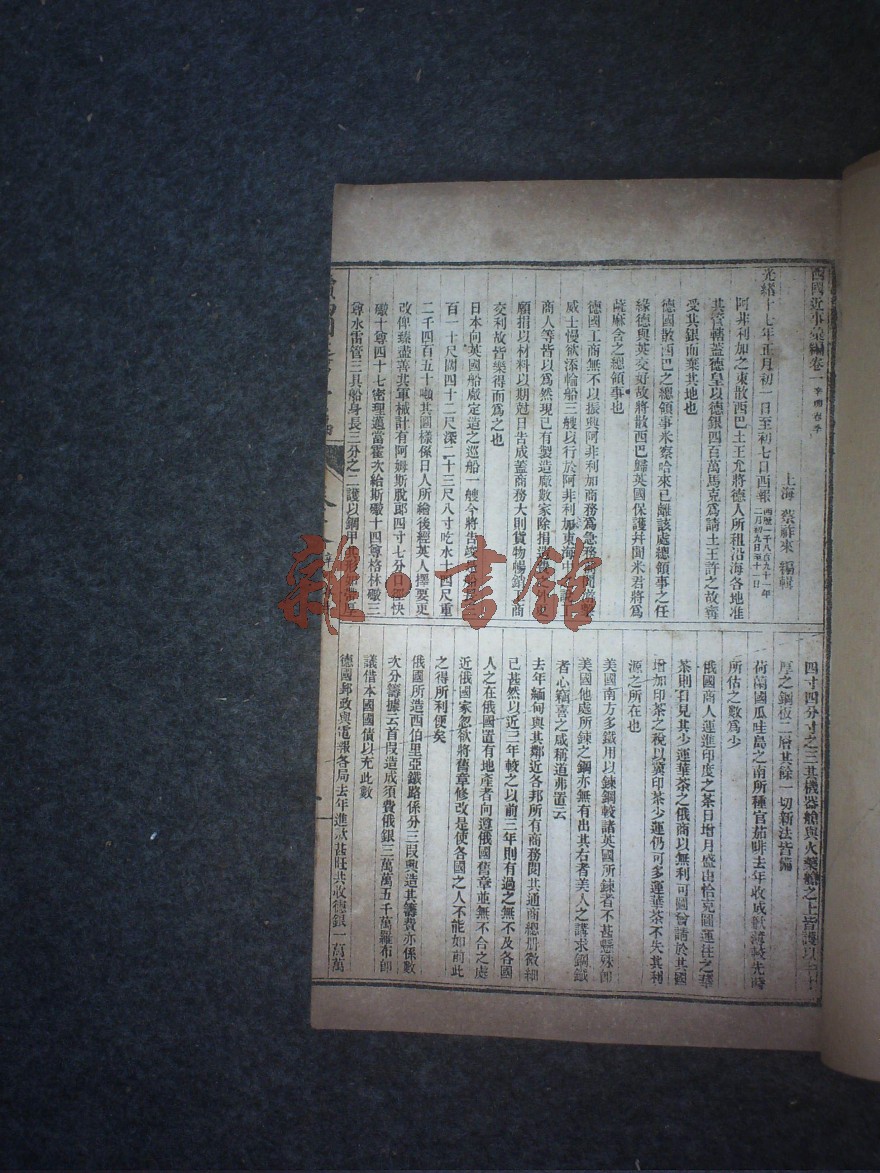 西國近事彙編卷一 辛卯春季
上海 蔡祚來 編輯
光緒十七年正月初一日至初七日西報 西歷一千八百九十一年二月初九日至十五日
阿非利加之東散西巴土王允將德人所租沿海各地准
其管轄蓋德皇以德銀四百萬馬克爲請土王許之故甯
受其銀而棄其地也
德國散西巴之總領事米察哈來已離該處總領事之任
緣德與英交好故將散西巴歸英國保護幷聞米君將爲
薩麻舍之總領事也
德國工商無不以振興阿非利加商務爲急務
威士慢欲添輪船三艘以行於阿非利加東海中
商人等皆以爲然現已有製造廠數家除捐
願捐以材料以期尅日告成蓋商務大則貨物暢銷工商
交利故皆樂得而爲之也
日本向英國船廠定造之巡船一艘今將告竣
百一十尺闊四十二尺深二十三尺八寸吃水十四尺重
二千四百五十噸其圖樣係日人所繪後經英人擇要更
改俾臻盡善其軍械計有阿姆斯脫郎四寸七分口徑快
礮十尊四十七密理邁當霍次給斯礮十四尊格林礮三
尊水雷管三具船身長三分之二護以鋼甲
四寸四分寸之三其機器艙與火藥艙之上皆護以
厚之鋼板二層其餘一切新法皆備
荷蘭國瓜哇島之南所種官茄啡去年收成歉薄較先時
所估之數爲少
俄國商人運進印度之茶日增月盛由恰克圖運往之華
茶則日見其少運華茶之俄商以無利可圖會請於其國
增加印茶之稅以冀印茶少運仍可多運華茶不失其利
源之所在也
美國南方多鐵用以鍊鋼較諸英國所鍊者不甚懸殊卽
美國他處所鍊之鋼亦無有出其右者美人之講求鋼鐵
者心竊喜之咸稱道弗置云
去年緬甸與其鄰近各邦所有商務閱其通商總冊微細
已甚然以近三年較之以前三年則有過之無不及各國
人之在俄國置有地產者向遵俄國舊章並無不合之處
近俄國家忽欲將舊章修改是使各國之人不能如前此
之得所利便矣
俄國所造西伯里亞鐵路係分三段興造其籌費亦係數
次分籌據云首段造成須費俄銀三萬萬五千萬羅布卽
議借本國國債以充此數
德國郵政與電報各局去年進款甚旺共收德銀一萬萬
雜·書館